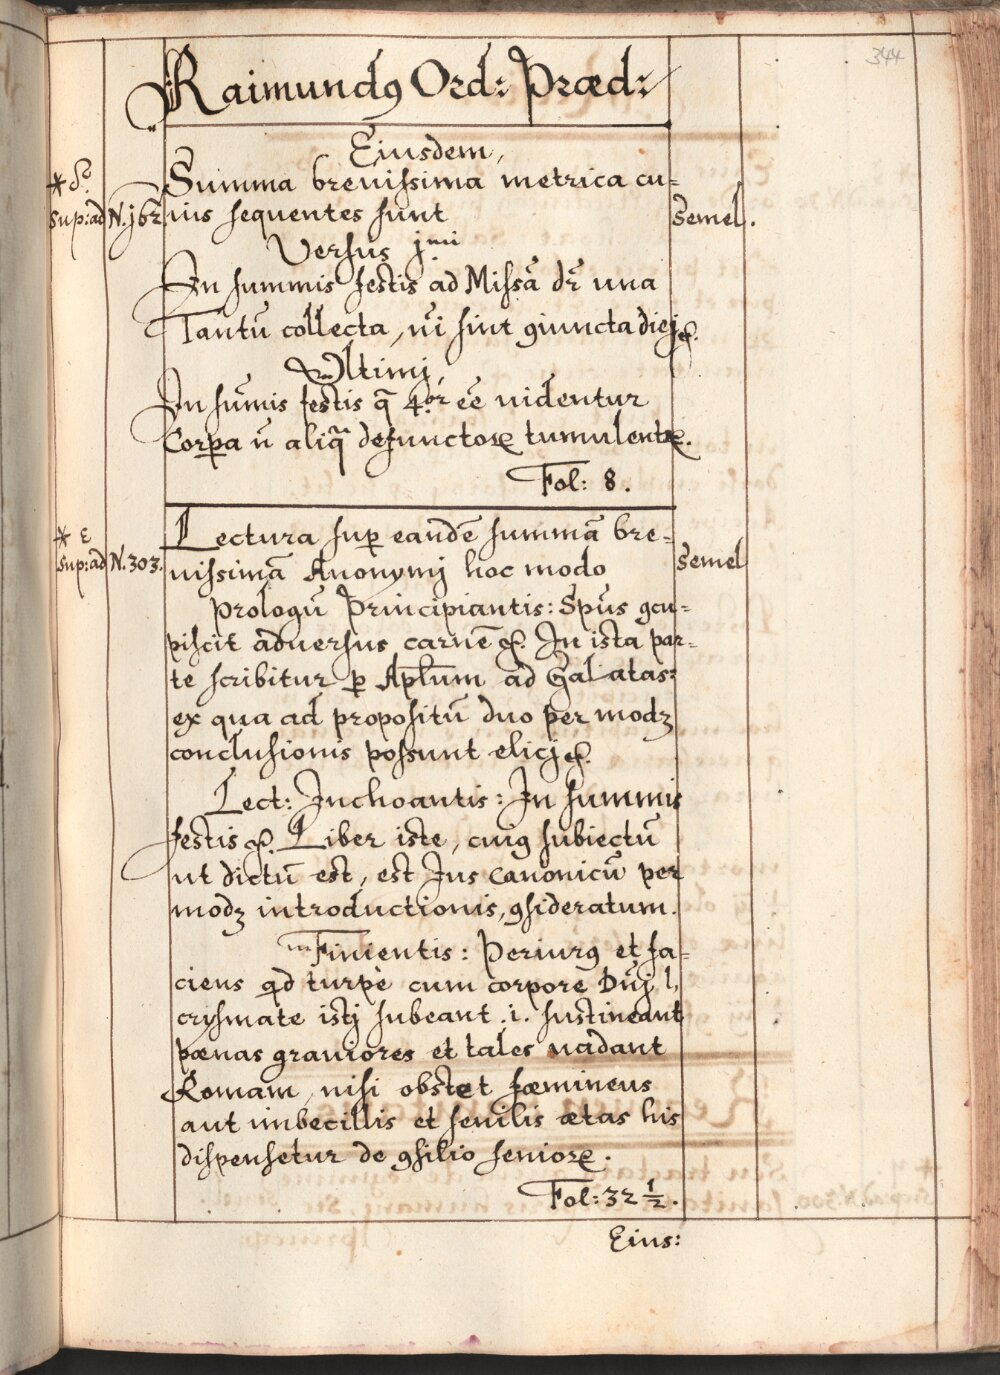 344
Raimundꝰ Ord: Præd:
Eiusdem,
Summa breuissima metrica cu=
* sup: ad N. j62. ius sequentes sunt semel.
Versus j.mi
In summis festis ad Missā dr̄ una
Tantū collecta, ni sint ꝯiuncta diej &.
Vltimj,
In sum̄is festis q̄ 4.or eē uidentur
Corꝑa ū aliq̄ defunctoꝝ tumulentꝝ.
Fol: 8.
Lectura suꝑ eandē summā bre=
* ε sup: ad N. 303. uissimā Anonymj hoc modo semel
Prologū Principiantis: Spūs ꝯcu=
piscit aduersus carnē &. In ista par=
te scribitur ꝑ Apl̄um ad Galatas:
ex qua ad propositū duo per modꝫ
conclusionis possunt elicj &.
Lect: Inchoantis: In summis
festis &. Liber iste, cuiꝰ subiectū
ut dictū est, est Jus Canonicū per
modꝫ introductionis, ꝯsideratum.
Finientis: Periurꝰ et fa=
ciens qd turpe cum corpore Dn̄j l,
crysmate istj subeant .i. sustineant
pœnas grauiores et tales uadant
Romam, nisi obstet fœmineus
aut imbecillis et senilis ætas his
dispensetur de ꝯsilio senioꝝ.
Fol: 32 ½.
Eius: